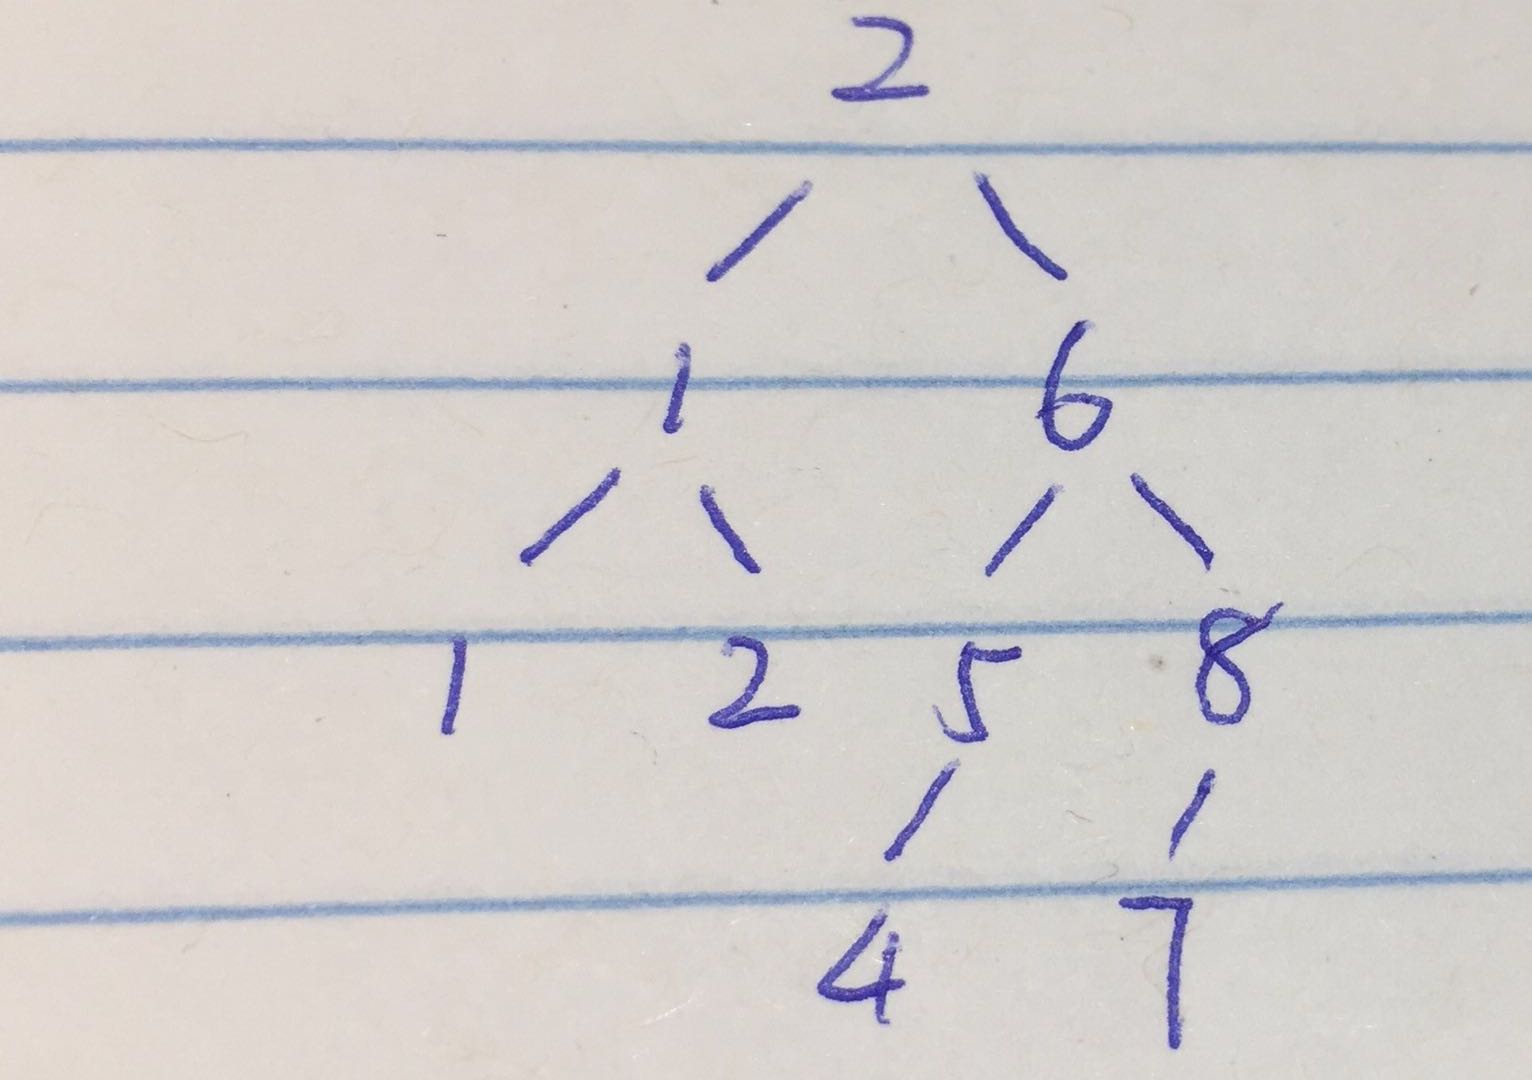 2
1 6
1 2 5 8
4 7